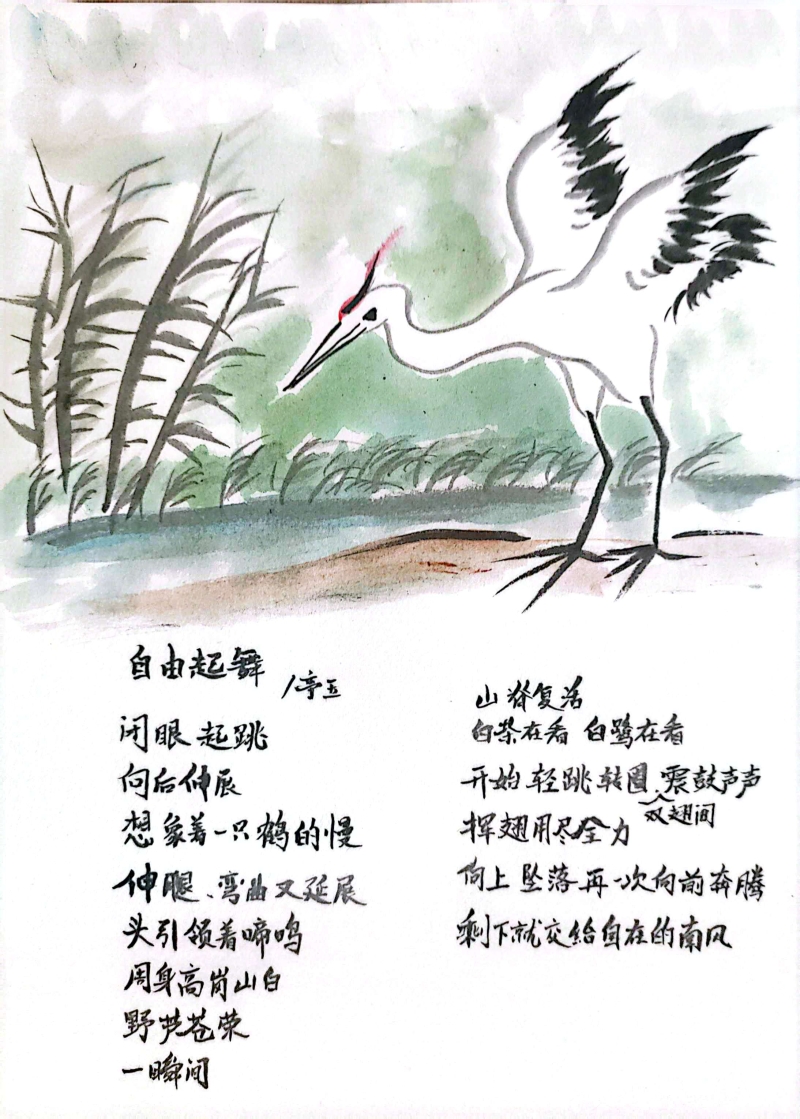 自由起舞
/亭五
闭眼起跳
向后伸展
想象着一只鹤的慢
伸腿、弯曲又延展
头引领着啼鸣
周身高岗山白
野芦苍荣
一瞬间
山脊复活
白茶在看 白鹭在看
开始轻跳转圈、震鼓声声
双翅间
挥翅用尽全力
向上 坠落 再一次向前奔腾
剩下就交给自在的南风